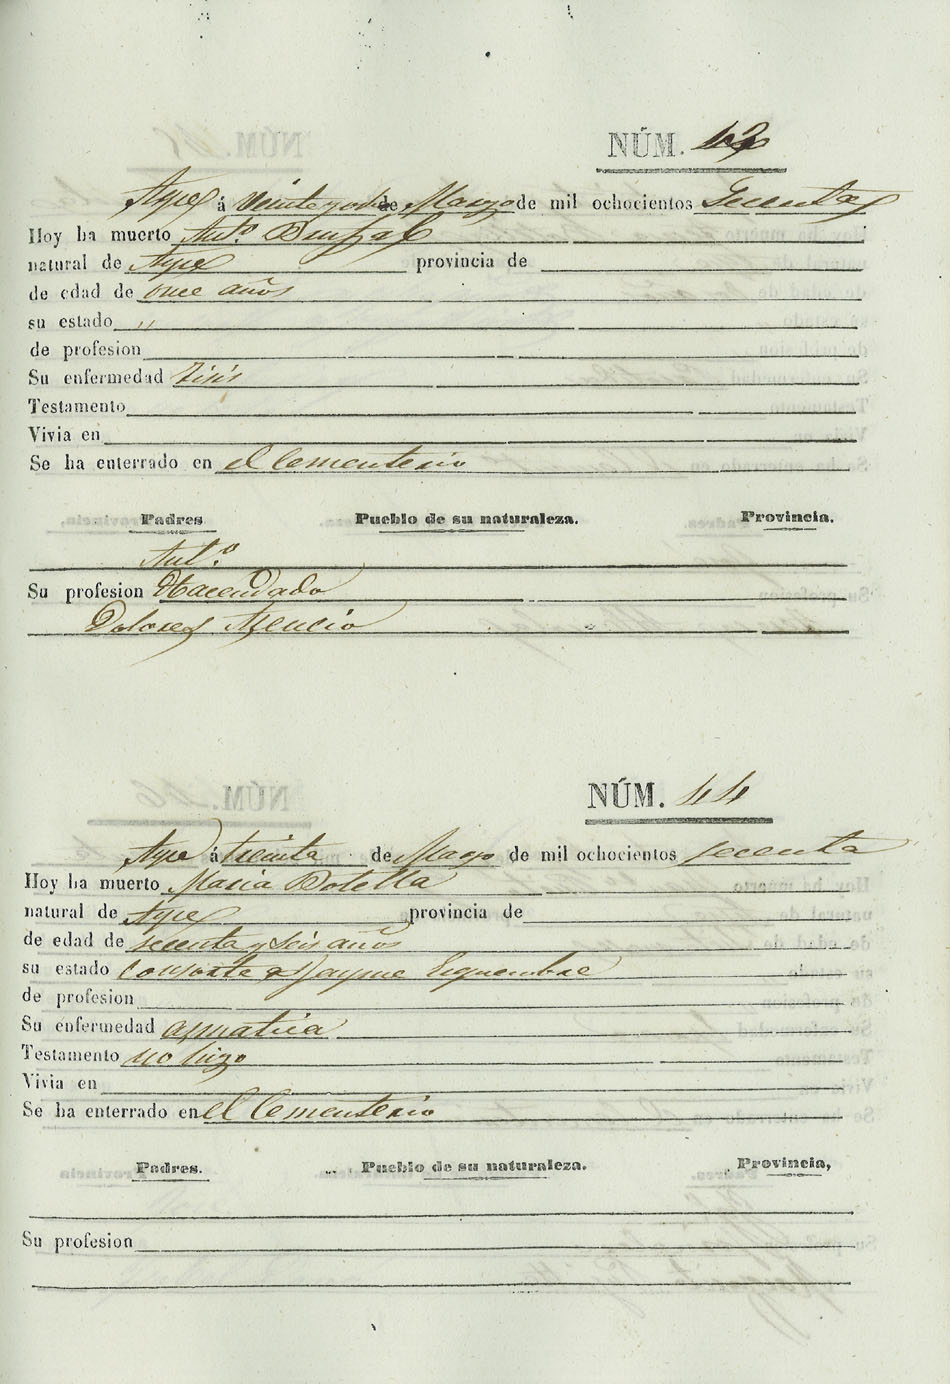 NÚM. 43
Aspe á veinte y de Marzo de mil ochocientos Secenta
Hoy ha muerto Ant.º
natural de Aspe provincia de
de edad de once años
su estado "
de profesion
Su enfermedad tisis
Testamento
Vivia en
Se ha enterrado en el Cementerio
Padres Pueblo de su naturaleza. Provincia.
Ant.º
Su profesion Hacendado
Dolores Asencio
NÚM. 44
Aspe á treinta de Marzo de mil ochocientos secenta
Hoy ha muerto Maria Botella
natural de Aspe provincia de
de edad de secenta y seis años
su estado consorte Jayme
de profesion
Su enfermedad asmatica
Testamento no hizo
Vivia en
Se ha enterrado en el Cementerio
Padres. Pueblo de su naturaleza. Provincia,
Su profesion